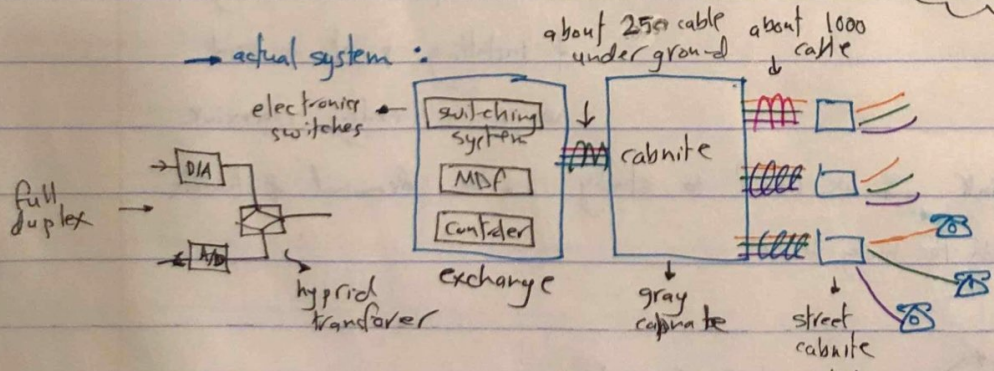 → actual system :
about 250 cable
under ground
about 1000
cable
electronics
switches
switching
system
MDF
Controler
exchange
cabnite
gray
cabnate
street
cabnite
full
duplex
D/A
A/D
hyprid
transforer